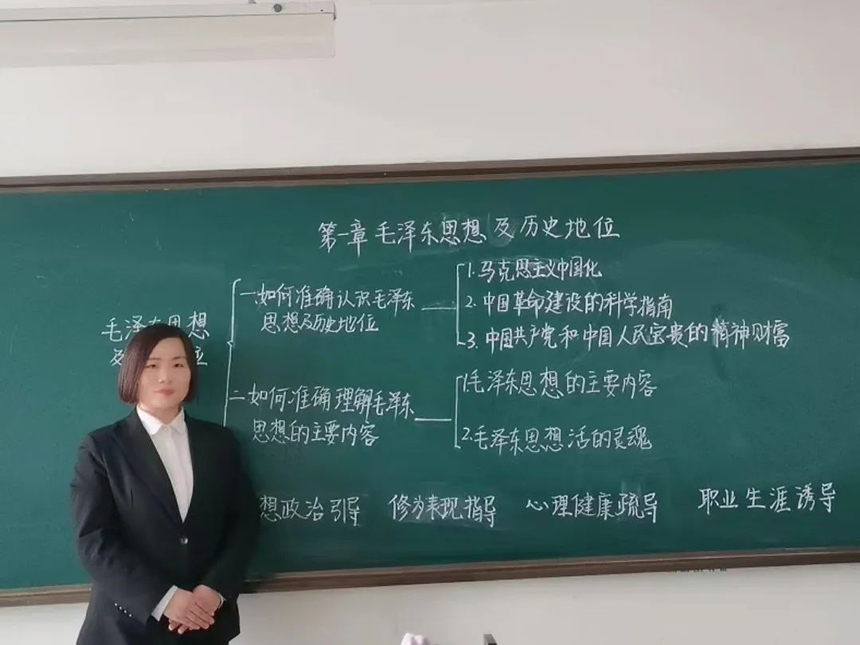 第一章 毛泽东思想及历史地位
毛泽东思想
及
位
一.如何准确认识毛泽东
思想及历史地位
1.马克思主义中国化
2.中国革命建设的科学指南
3.中国共产党和中国人民宝贵的精神财富
二.如何准确理解毛泽东
思想的主要内容
1.毛泽东思想的主要内容
2.毛泽东思想活的灵魂
想政治引导 修为表现指导 心理健康疏导 职业生涯诱导